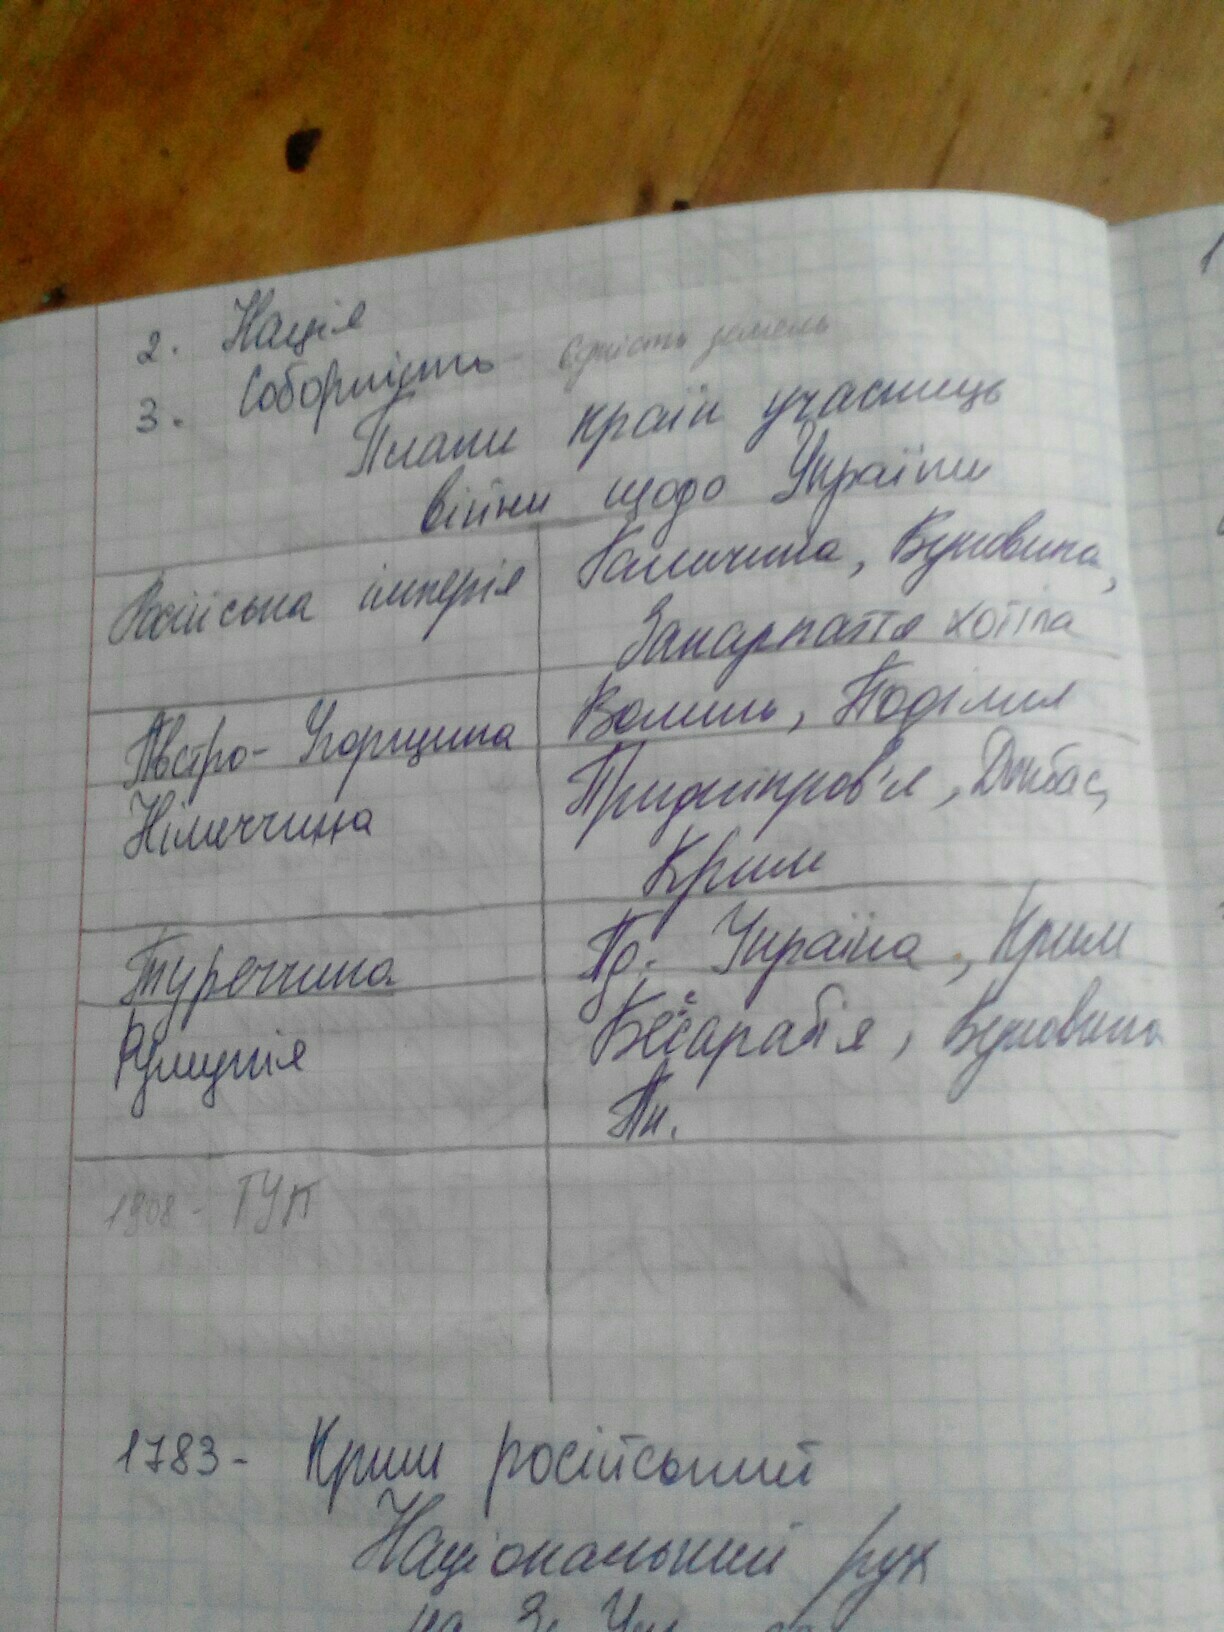 2. Нація
3. Соборність - єдність земель
Плани країн учасниць
війни щодо України
Російська імперія Галичина, Буковина,
Закарпаття хотіла
Австро-Угорщина Волинь, Поділля
Німеччина Придніпров'я, Донбас,
Крим
Туреччина Пд. Україна, Крим
Румунія Бесарабія, Буковина
Пн.
1908 - ТУП
1783 - Крим російський
Національний рух
на